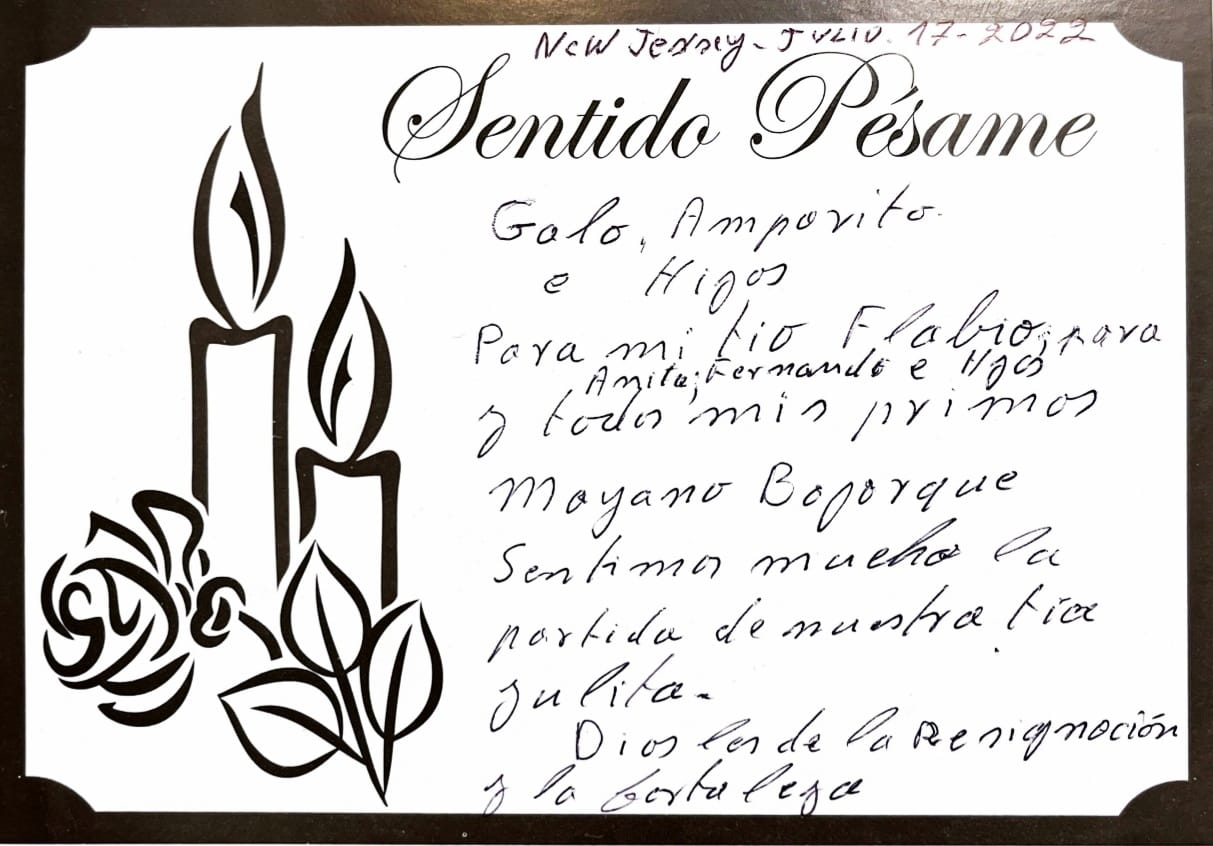 New Jersey - Julio. 17 - 2022
Sentido Pésame
Galo, Amporito.
e Hijos
Para mi tio Flabio, para
Anita, Fernando e Hjos
y todos mis primos
Moyano Bojorque
Sentimos mucho la
partida de nuestra tia
Julita.
Dios les de la Resignación
y la fortaleza